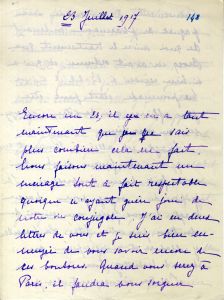 23 Juillet 1917 148
Encore un 23, il y en a tant
maintenant que je ne sais
plus combien cela en fait.
Nous faisons maintenant un
ménage tout à fait respectable
quoique n'ayant guère joui de
notre vie conjugale. J'ai eu deux
lettres de vous et je suis bien en-
nuyée de vous savoir encore
ces boutons. Quand vous serez à
Paris, il faudra vous soigner